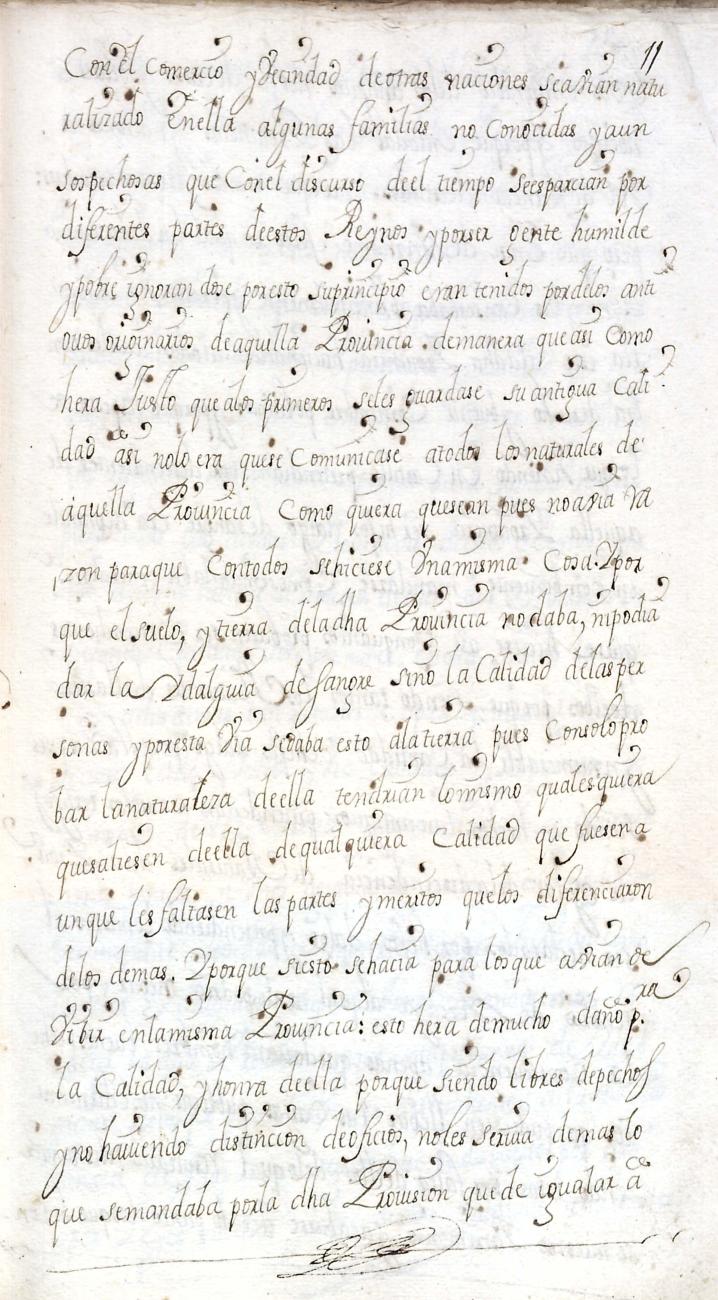 11
Con el Comercio y Vecindad de otras naciones se avian natu
ralizado En ella algunas familias no Conocidas y aun
sospechosas que Con el discurso de el tiempo se esparcian por
diferentes partes de estos Reynos y por ser gente humilde
y pobre ignorandose por esto su principio eran tenidos por de los anti
guos originarios de aquella Provincia. de manera que asi Como
hera Justo que a los primeros se les guardase su antigua Cali
dad asi no lo era que se Comunicase a todos los naturales de
aquella Provincia Como quiera que sean pues no avia Ra
zon para que Con todos se hiciese Una misma Cosa. Y por
que el suelo, y tierra de la dha Provincia no daba, ni podia
dar la Ydalguia de sangre sino la Calidad de las per
sonas y por esta Via se daba esto a la tierra pues Con solo pro
bar la naturaleza de ella tendrian lo mismo quales quiera
que saliesen de ella de qualquiera Calidad que fuesen a
unque les faltasen las partes y meritos que los diferenciaron
de los demas. Y porque si esto se hacia para los que avian de
Vibir en la misma Provincia: esto hera de mucho daño p.ra
la Calidad, y honra de ella porque siendo libres de pechos
y no haviendo distincion de oficios, no les servia de mas lo
que se mandaba por la dha Provision que de igualar a